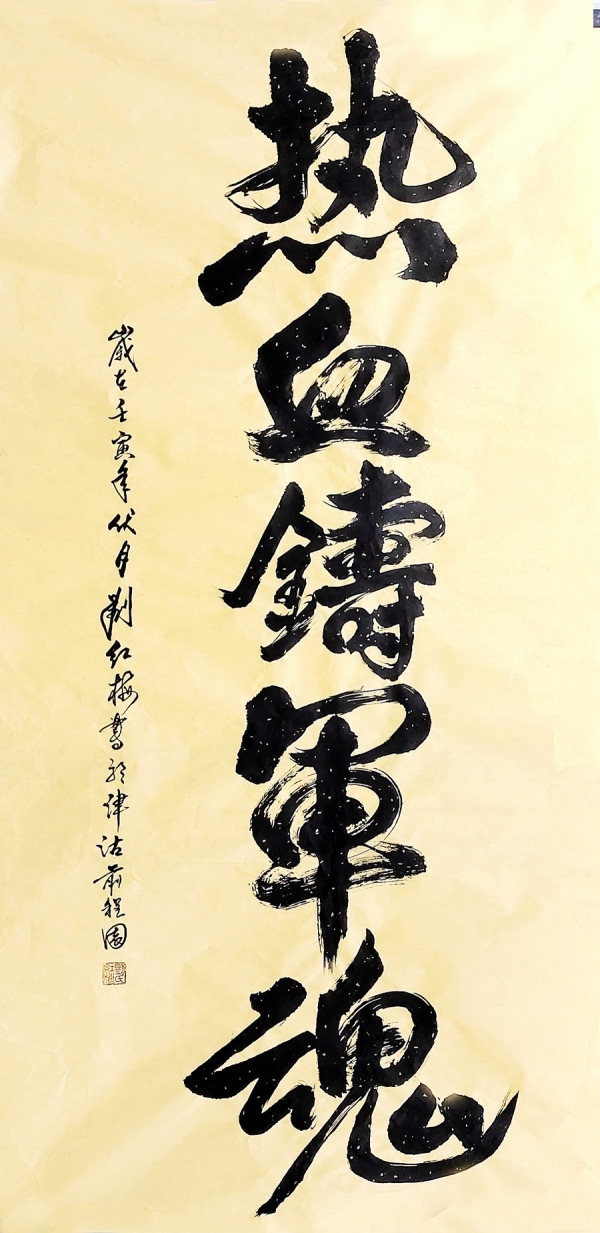 热血鑄軍魂
歲在壬寅年伏月劉红梅書於津沽前程園